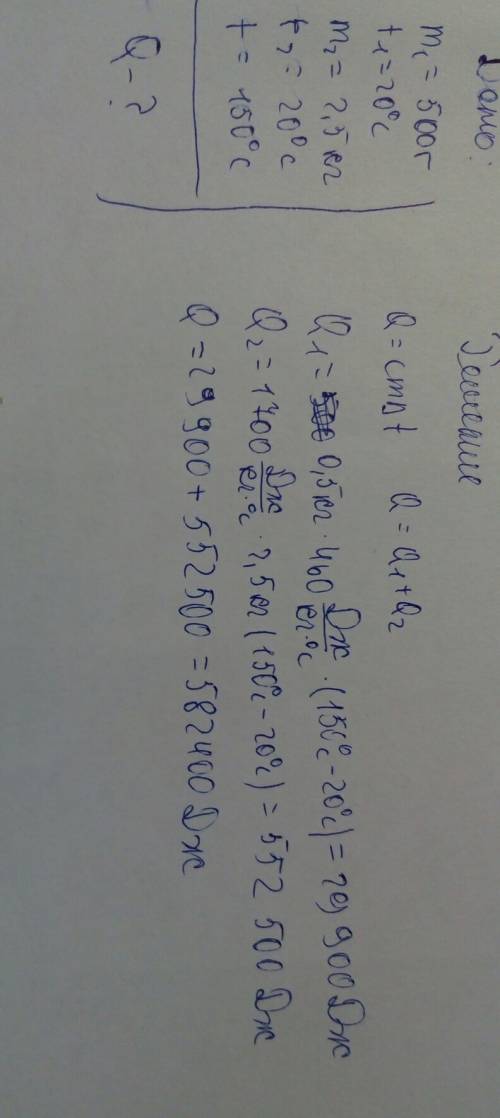 Дано:
m₁ = 500г
t₁ = 20°C
m₂ = 2,5 кг
t₂ = 20°C
t = 150°C
Q - ?
Решение
Q = cmΔt Q = Q₁ + Q₂
Q₁ = 0,5 кг · 460 Дж/кг·°C · (150°C - 20°C) = 29 900 Дж
Q₂ = 1700 Дж/кг·°C · 2,5 кг (150°C - 20°C) = 552 500 Дж
Q = 29 900 + 552500 = 582400 Дж